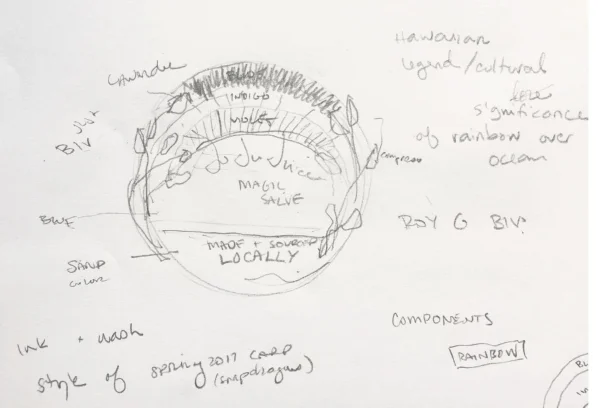 Hawaiian
legend/cultural
significance
of rainbow over
ocean
Lavender
BLUE
INDIGO
VIOLET
JUST
BIV
JuJu Juice
MAGIC
SALVE
BLUE
MADE + SOURCED
LOCALLY
SAND
COLOR
ROY G BIV
COMPONENTS
RAINBOW
ink + wash
style of SPRING 2017 CARD
(snapdragons)
BL
IN